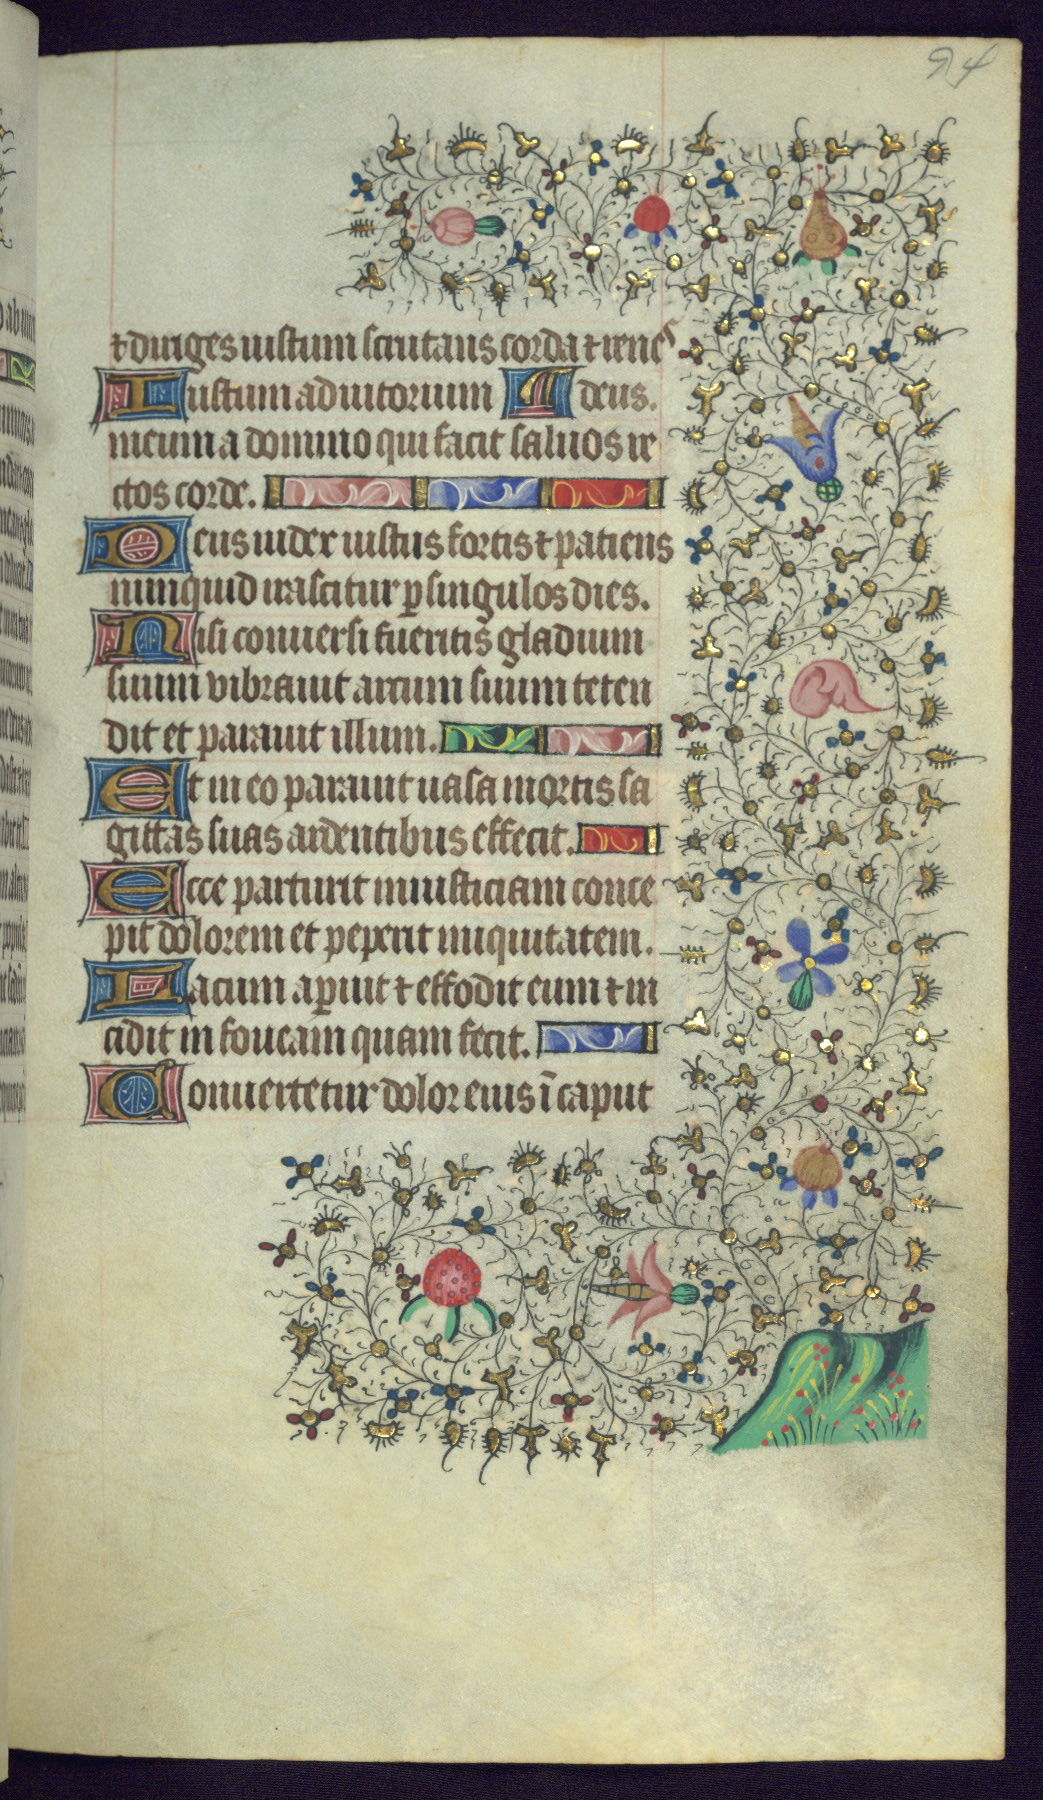 94
⁊ diriges iustum scrutans corda ⁊ renes
Iustum adiutorium ¶ deus.
meum a domino qui facit saluos re
ctos corde.
Deus iudex iustus fortis ⁊ patiens
nunquid irascitur ꝑ singulos dies.
Nisi conuersi fueritis gladium
suum vibrauit arcum suum teten
dit et parauit illum.
Et in eo parauit uasa mortis sa
gittas suas ardentibus effecit.
Ecce parturit iniusticiam conce
pit dolorem et peperit iniquitatem.
Lacum aꝑuit ⁊ effodit eum ⁊ in
cidit in foueam quam fecit.
Conuertetur dolor eius ī caput